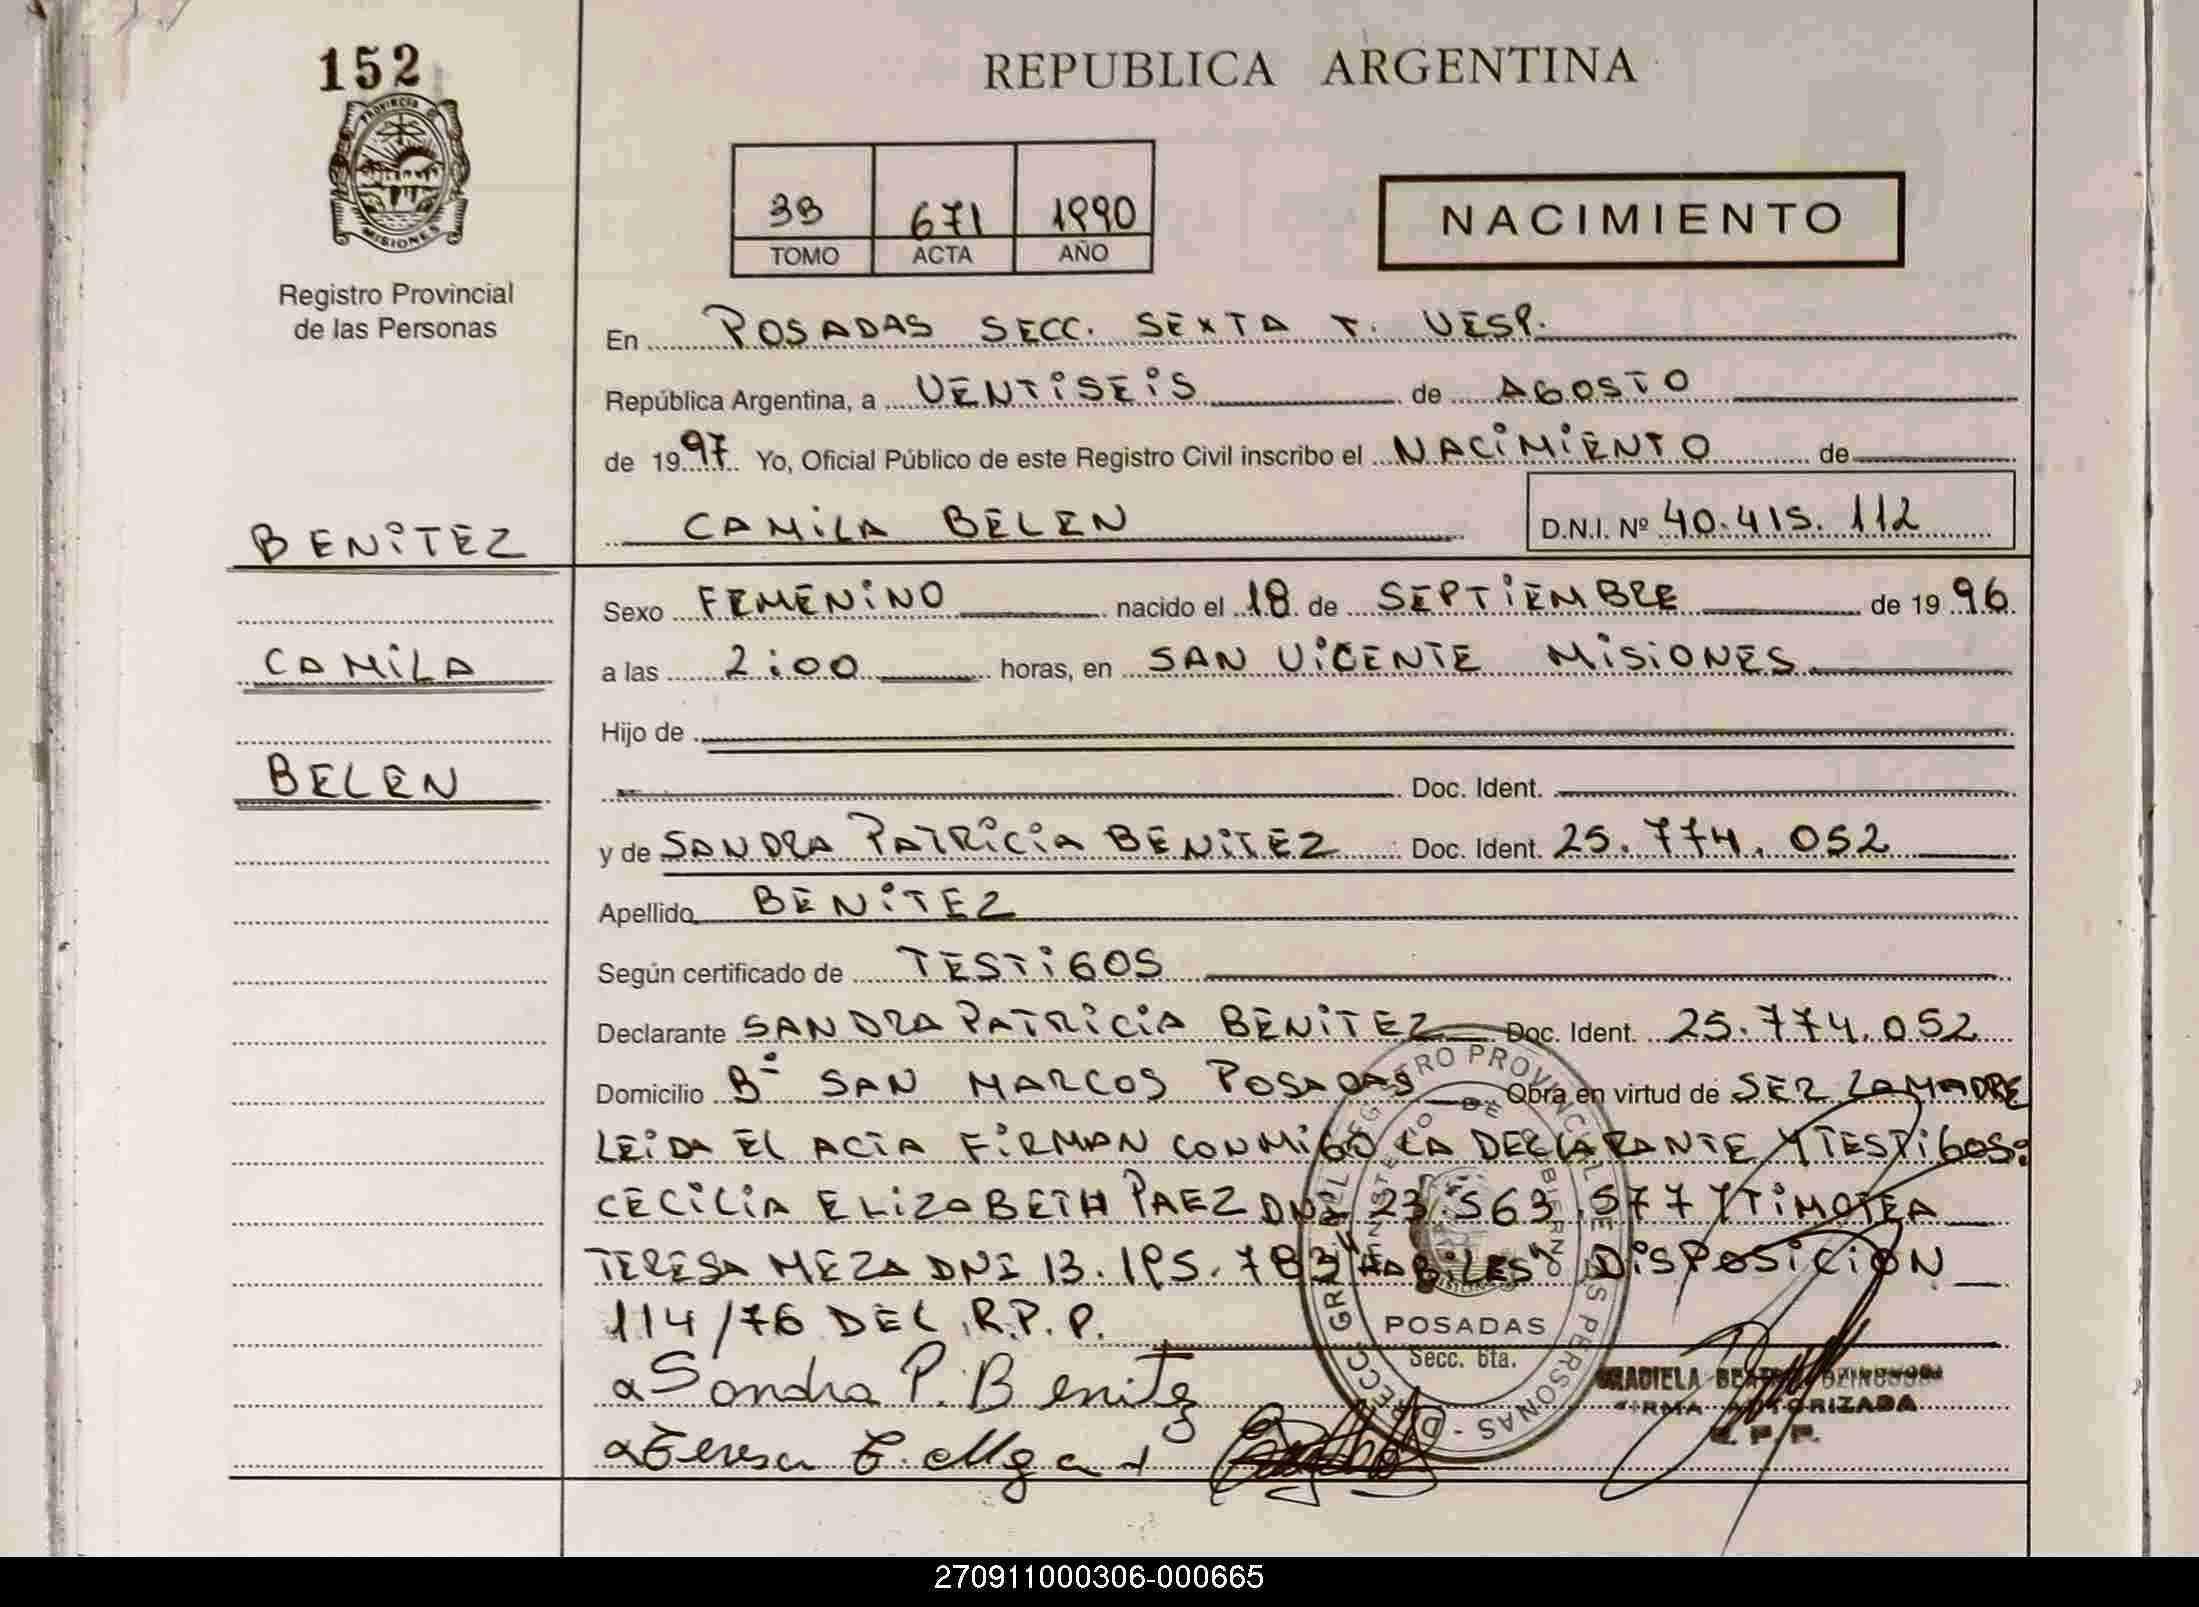 152
REPUBLICA ARGENTINA
PROVINCIA
MISIONES
Registro Provincial
de las Personas
3B 671 1990
TOMO ACTA AÑO
NACIMIENTO
En POSADAS SECC. SEXTA T. VESP.
República Argentina, a VENTISEIS de AGOSTO
de 1997 Yo, Oficial Público de este Registro Civil inscribo el NACIMIENTO de
CAMILA BELEN D.N.I. Nº 40.415.112
BENITEZ
CAMILA
BELEN
Sexo FEMENINO nacido el 18 de SEPTIEMBRE de 1996
a las 2:00 horas, en SAN VICENTE MISIONES
Hijo de
Doc. Ident.
y de SANDRA PATRICIA BENITEZ Doc. Ident. 25.774.052
Apellido BENITEZ
Según certificado de TESTIGOS
Declarante SANDRA PATRICIA BENITEZ Doc. Ident. 25.774.052
Domicilio Bº SAN MARCOS POSADAS Obra en virtud de SER LA MADRE
LEIDA EL ACTA FIRMAN CONMIGO LA DECLARANTE Y TESTIGOS:
CECILIA ELIZABETH PAEZ DNI 23.563.577 Y TIMOTEA
TERESA MEZA DNI 13.195.783 "HABILES" DISPOSICION
114/76 DEL R.P.P.
Sandra P. Benitez
Teresa T. Meza
POSADAS
Secc. 6ta.
GRACIELA
FIRMA AUTORIZADA
270911000306-000665